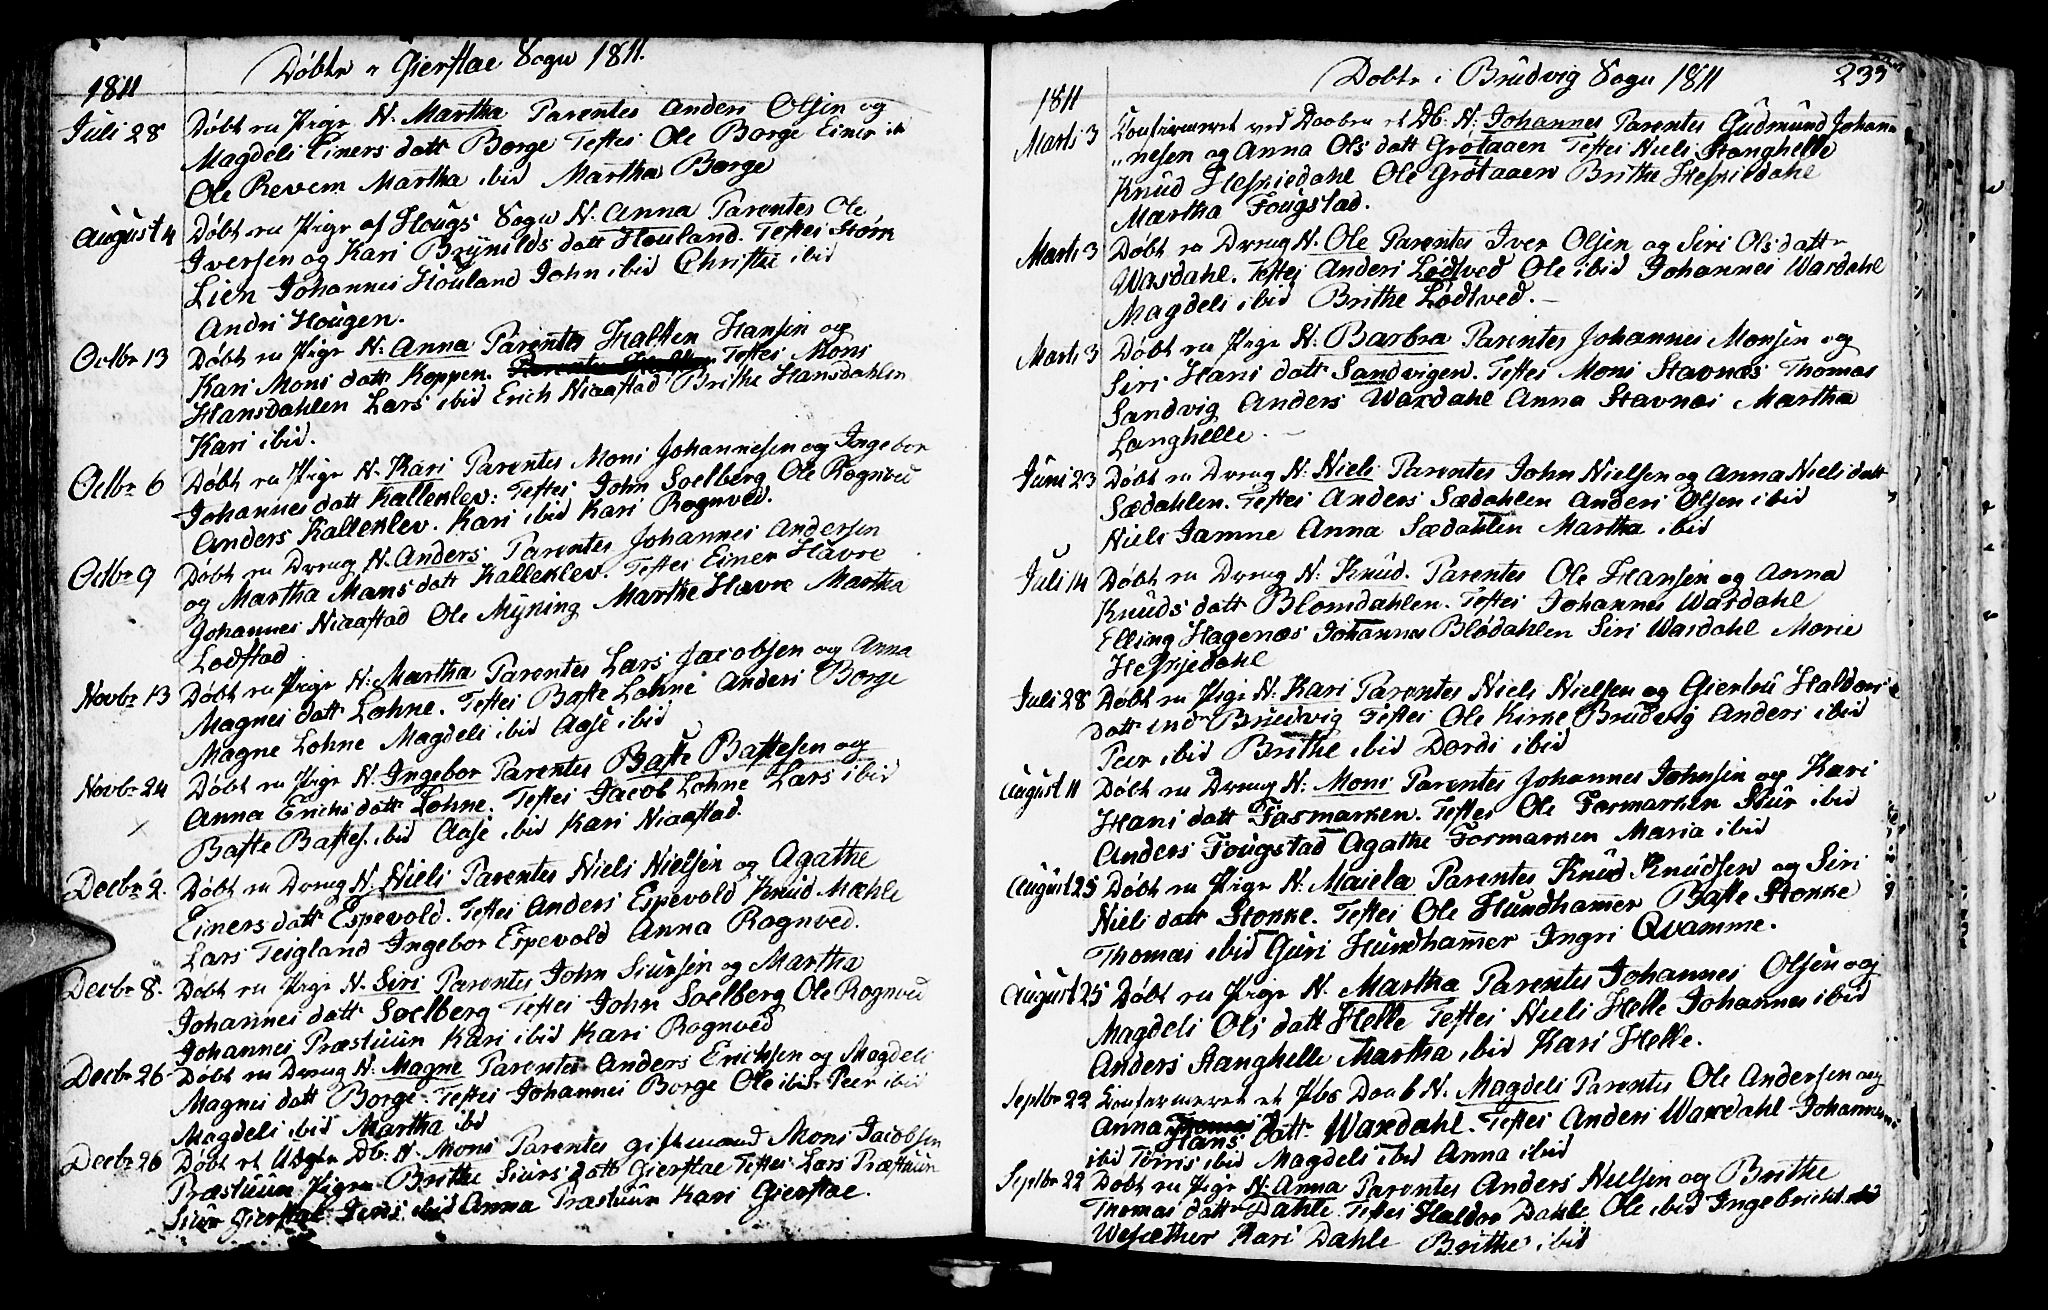 Døbte i Gierstae Sogn 1811.
1811
Juli 28 Døbt en Pige N. Martha Parentes Anders Olsen og
Magdeli Einers datt Borge Testes Ole Borge Einer ib
Ole Revem Martha ibid Martha Borge
August 4 Døbt en Pige af Hougs Sogn N. Anna Parentes Ole
Iversen og Kari Brynilds datt Houland. Testes Størk
Lien Johannes Houland John ibid Christi ibid
Andri Hougen.
Octbr 13 Døbt en Pige N. Anna Parentes Halsten Hansen og
Kari Mons datt Koppen. Testes Mons
Hansdahlen Lars ibid Erich Niaastad Brithe Hansdahlen
Kari ibid.
Octbr 6 Døbt en Pige N. Kari Parentes Mons Johannesen og Ingebor
Johannes datt Kalleklev: Testes John Soelberg Ole Rognved
Anders Kalleklev. Kari ibid Kari Rognved.
Octbr 9 Døbt en Dreng N. Anders Parentes Johannes Andersen
og Martha Mons datt Kalleklev. Testes Einer Havre
Johannes Niaastad Ole Myking Marthe Havre Martha
Lodstad
Novbr 13 Døbt en Pige N. Martha Parentes Lars Jacobsen og Anna
Magnes datt Lohne. Testes Baste Lohne Anders Borge
Magne Lohne Magdeli ibid Aase ibid
Novbr 24 Døbt en Pige N. Ingebor Parentes Baste Bastesen og
Anna Erichs datt Lohne. Testes Jacob Lohne Lars ibid
Baste Bastes. ibid Aase ibid Kari Niaastad.
Decbr 2. Døbt en Dreng N. Niels Parentes Niels Nielsen og Agathe
Einers datt Espevold. Testes Anders Espevold Knud Mæhle
Lars Teigland Ingebor Espevold Anna Rognved.
Decbr 8. Døbt en Pige N. Siri Parentes John Siursen og Martha
Johannes datt Soelberg Testes John Soelberg Ole Rognved
Johannes Præstuun Kari ibid Kari Rognved
Decbr 26 Døbt en Dreng N. Magne Parentes Anders Erichsen og Magdeli
Magnes datt Borge. Testes Johannes Borge Ole ibid Peer ibid
Magdeli ibid Martha ibd
Decbr 26 Døbt et Uægte Db: N. Mons Parentes gift mand Mons Jacobsen
Præstuun Pigen Brithe Siurs datt Gierstae Testes Lars Præstuun
Siur Gierstae ibid Anna Præstuun Kari Gierstae.
Døbte i Brudvig Sogn 1811
1811
Marts 3 Confirmeret ved Daaben et Db: N: Johannes Parentes Gudmund Johan-
"nesen og Anna Ols datt Grotaaen Testes Niels Stanghelle
Knud Hesjiedahl Ole Grotaaen Brithe Hesjiedahl
Martha Fougstad.
Marts 3 Døbt en Dreng N. Ole Parentes Iver Olsen og Siri Ols datt
Wardahl. Testes Anders Lødtved Ole ibid Johannes Wardahl
Magdeli ibid Brithe Lødtved. -
Marts 3 Døbt en Pige N: Barbra Parentes Johannes Monsen og
Siri Hans datt Sandvigen. Testes Mons Stavnæs Thomas
Sandvig Anders Wardahl Anna Stavnæs Martha
Langhelle. -
Juni 23 Døbt en Dreng N: Niels Parentes John Nielsen og Anna Niels datt
Sædahlen. Testes Anders Sædahlen Anders Olsen ibid
Niels Jamne Anna Sædahlen Martha ibid
Juli 14 Døbt en Dreng N: Knud. Parentes Ole Hansen og Anna
Knuds datt Blomdahlen. Testes Johannes Wardahl
Elling Hagenæs Johannes Blødahlen Siri Wardahl Marie
Hesjedahl
Juli 28 Døbt en Pige N: Kari Parentes Niels Nielsen og Giertru Haldors
datt Indr Brudvig Testes Ole Kirke Brudvig Anders ibid
Peer ibid Brithe ibid Dordi ibid
August 11 Døbt en Dreng N: Mons Parentes Johannes Johnsen og Kari
Hans datt Fosmarken. Testes Ole Fosmarken Siur ibid
Anders Fougstad Agathe Formarken Maria ibid
August 25 Døbt en Pige N: Maiela Parentes Knud Knudsen og Siri
Niels datt Stokke. Testes Ole Hundhamer Baste Stokke
Thomas ibid Guri Hundhamer Ingri Qvamme.
August 25 Døbt en Pige N. Martha Parentes Johannes Olsen og
Magdeli Ols datt Helle Testes Niels Helle Johannes ibid
Anders Stanghelle Martha ibid Kari Helle.
Septbr 22 Confirmeret et Pbs Daab N. Magdeli Parentes Ole Andersen og
Anna Hans datt Wardahl. Testes Anders Wardahl Johannes
ibid Torris ibid Magdeli ibid Anna ibid
Septbr 22 Døbt en Pige N. Anna Parentes Anders Nielsen og Brithe
Thomas datt Dahle. Testes Haldor Dahle Ole ibid Ingebricht ibid
Wesæther Kari Dahle Brithe ibid